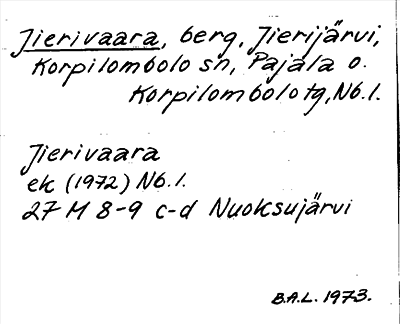 Jierivaara, berg, Jierijärvi,
Korpilombolo sn, Pajala o.
Korpilombolo tg, Nb.l.
Jierivaara
ek (1972) Nb.l.
27 M 8-9 c-d Nuoksujärvi
B.A.L. 1973.